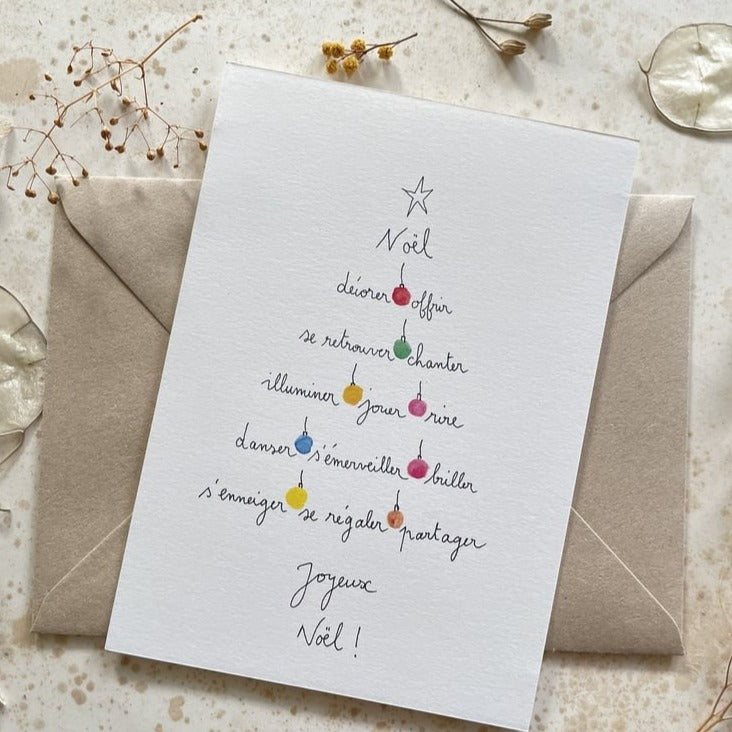 Noël
décorer offrir
se retrouver chanter
illuminer jouer rire
danser s'émerveiller briller
s'enneiger se régaler partager
Joyeux
Noël !